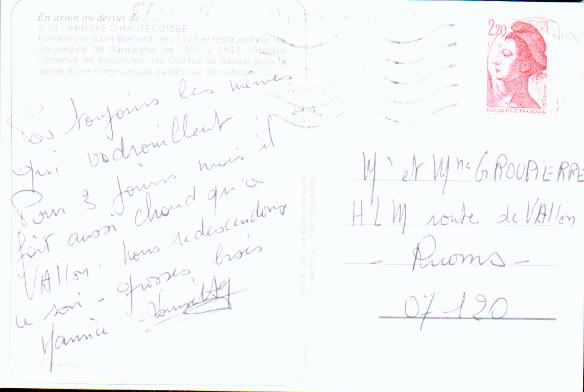 En avion au-dessus de
A 73 - ABBAYE D'HAUTECOMBE
Fondée par Saint-Bernard vers 1125 et restaurée par les
Souverains de Sardaigne de 1825 à 1843, l'Abbaye
conserve les sépultures des Comtes de Savoie sous la
garde d'une communauté de Moines Bénédictins
2,20
Pas toujours les mêmes
qui vadrouillent !
Pour 3 jours mais il
fait aussi chaud qu'a
VAllon. Nous redescendons
ce soir - grosses bises
Maurice
Mr et Mme GROUPIERRE
HLM route de VAllon
- Ruoms -
07120